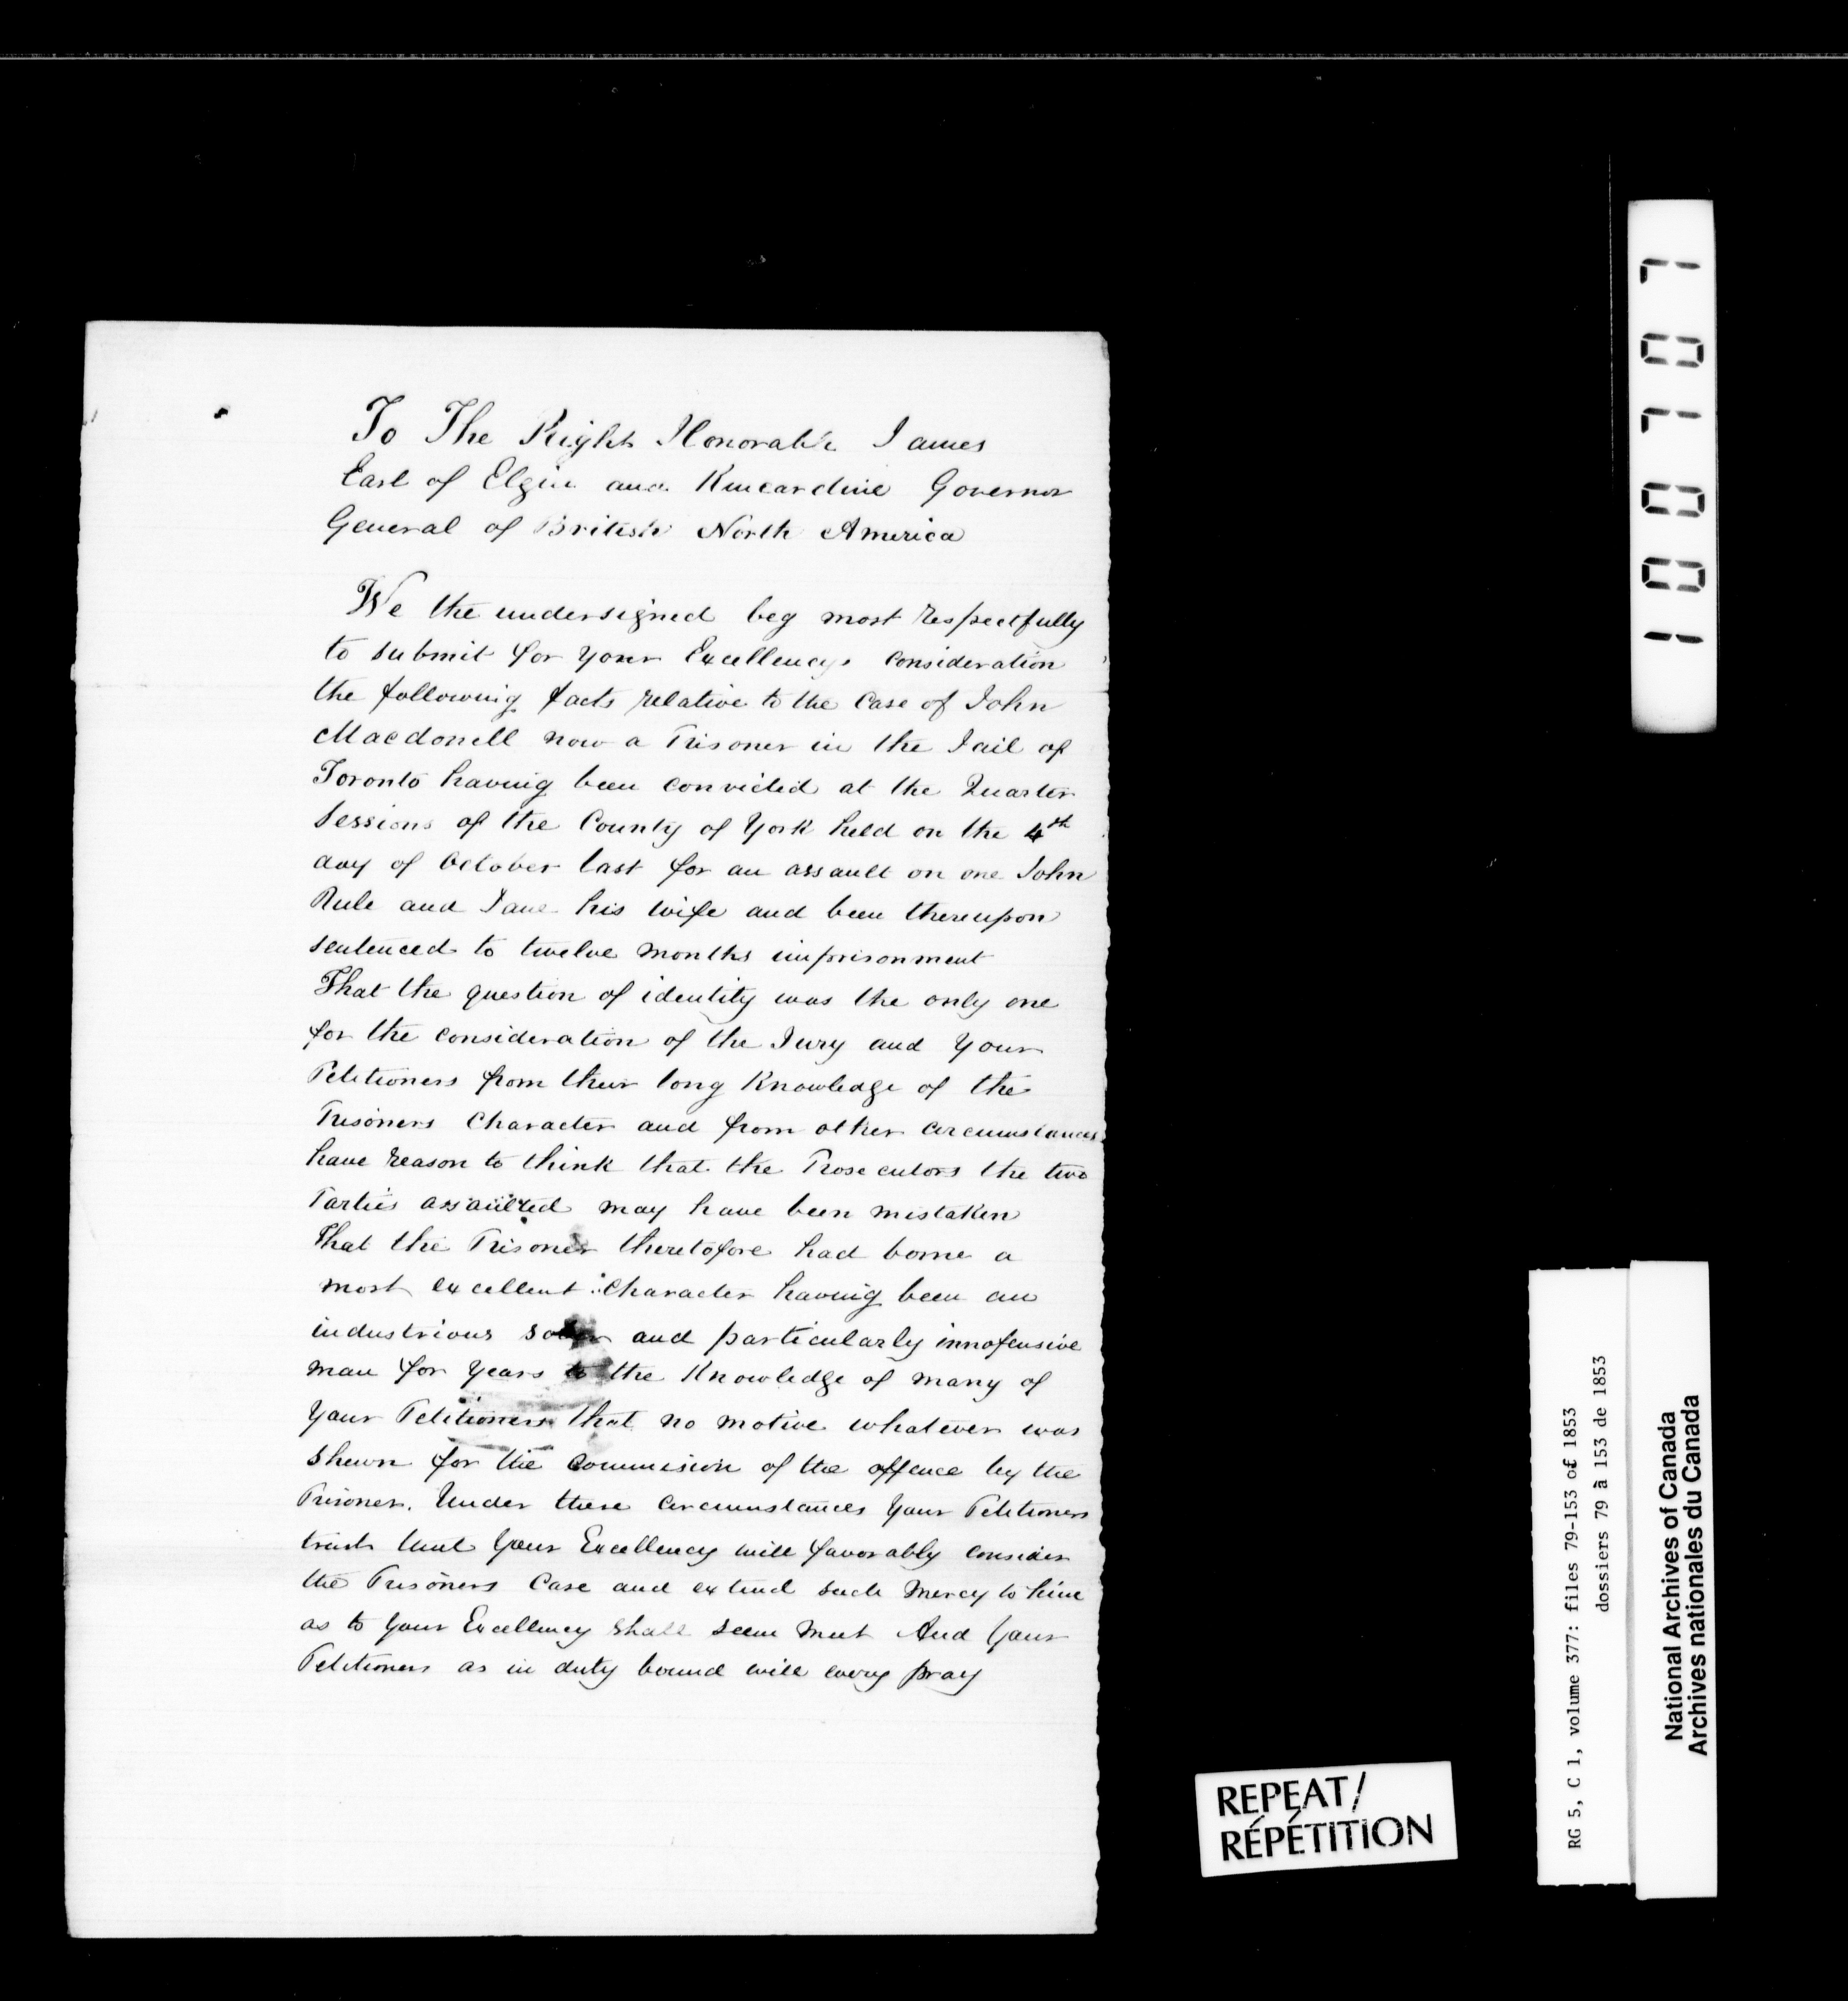 To The Right Honorable James
Earl of Elgin and Kincardine Governor
General of British North America
We the undersigned beg most respectfully
to submit for your Excellencys consideration
the following facts relative to the Case of John
Macdonell now a Prisoner in the Jail of
Toronto having been convicted at the Quarter
Sessions of the County of York held on the 4th
day of October last for an assault on one John
Rule and Jane his wife and been thereupon
sentenced to twelve months imprisonment
That the question of identity was the only one
for the consideration of the Jury and Your
Petitioners from their long Knowledge of the
Prisoners Character and from other circumstances
have reason to think that the Prosecutors the two
Parties assaulted may have been mistaken
That the Prisoner theretofore had borne a
most excellent Character having been an
industrious sober and particularly innofensive
man for years to the Knowledge of many of
Your Petitioners that no motive whatever was
Shewn for the Commision of the offence by the
Prisoner. Under these Circumstances Your Petitioners
trust that Your Excellency will favorably consider
the Prisoners Case and extend such Mercy to him
as to Your Excellency shall seem meet And Your
Petitioners as in duty bound will every pray
1007071
RG 5, C 1, volume 377: files 79-153 of 1853
dossiers 79 à 153 de 1853
National Archives of Canada
Archives nationales du Canada
REPEAT/
RÉPÉTITION